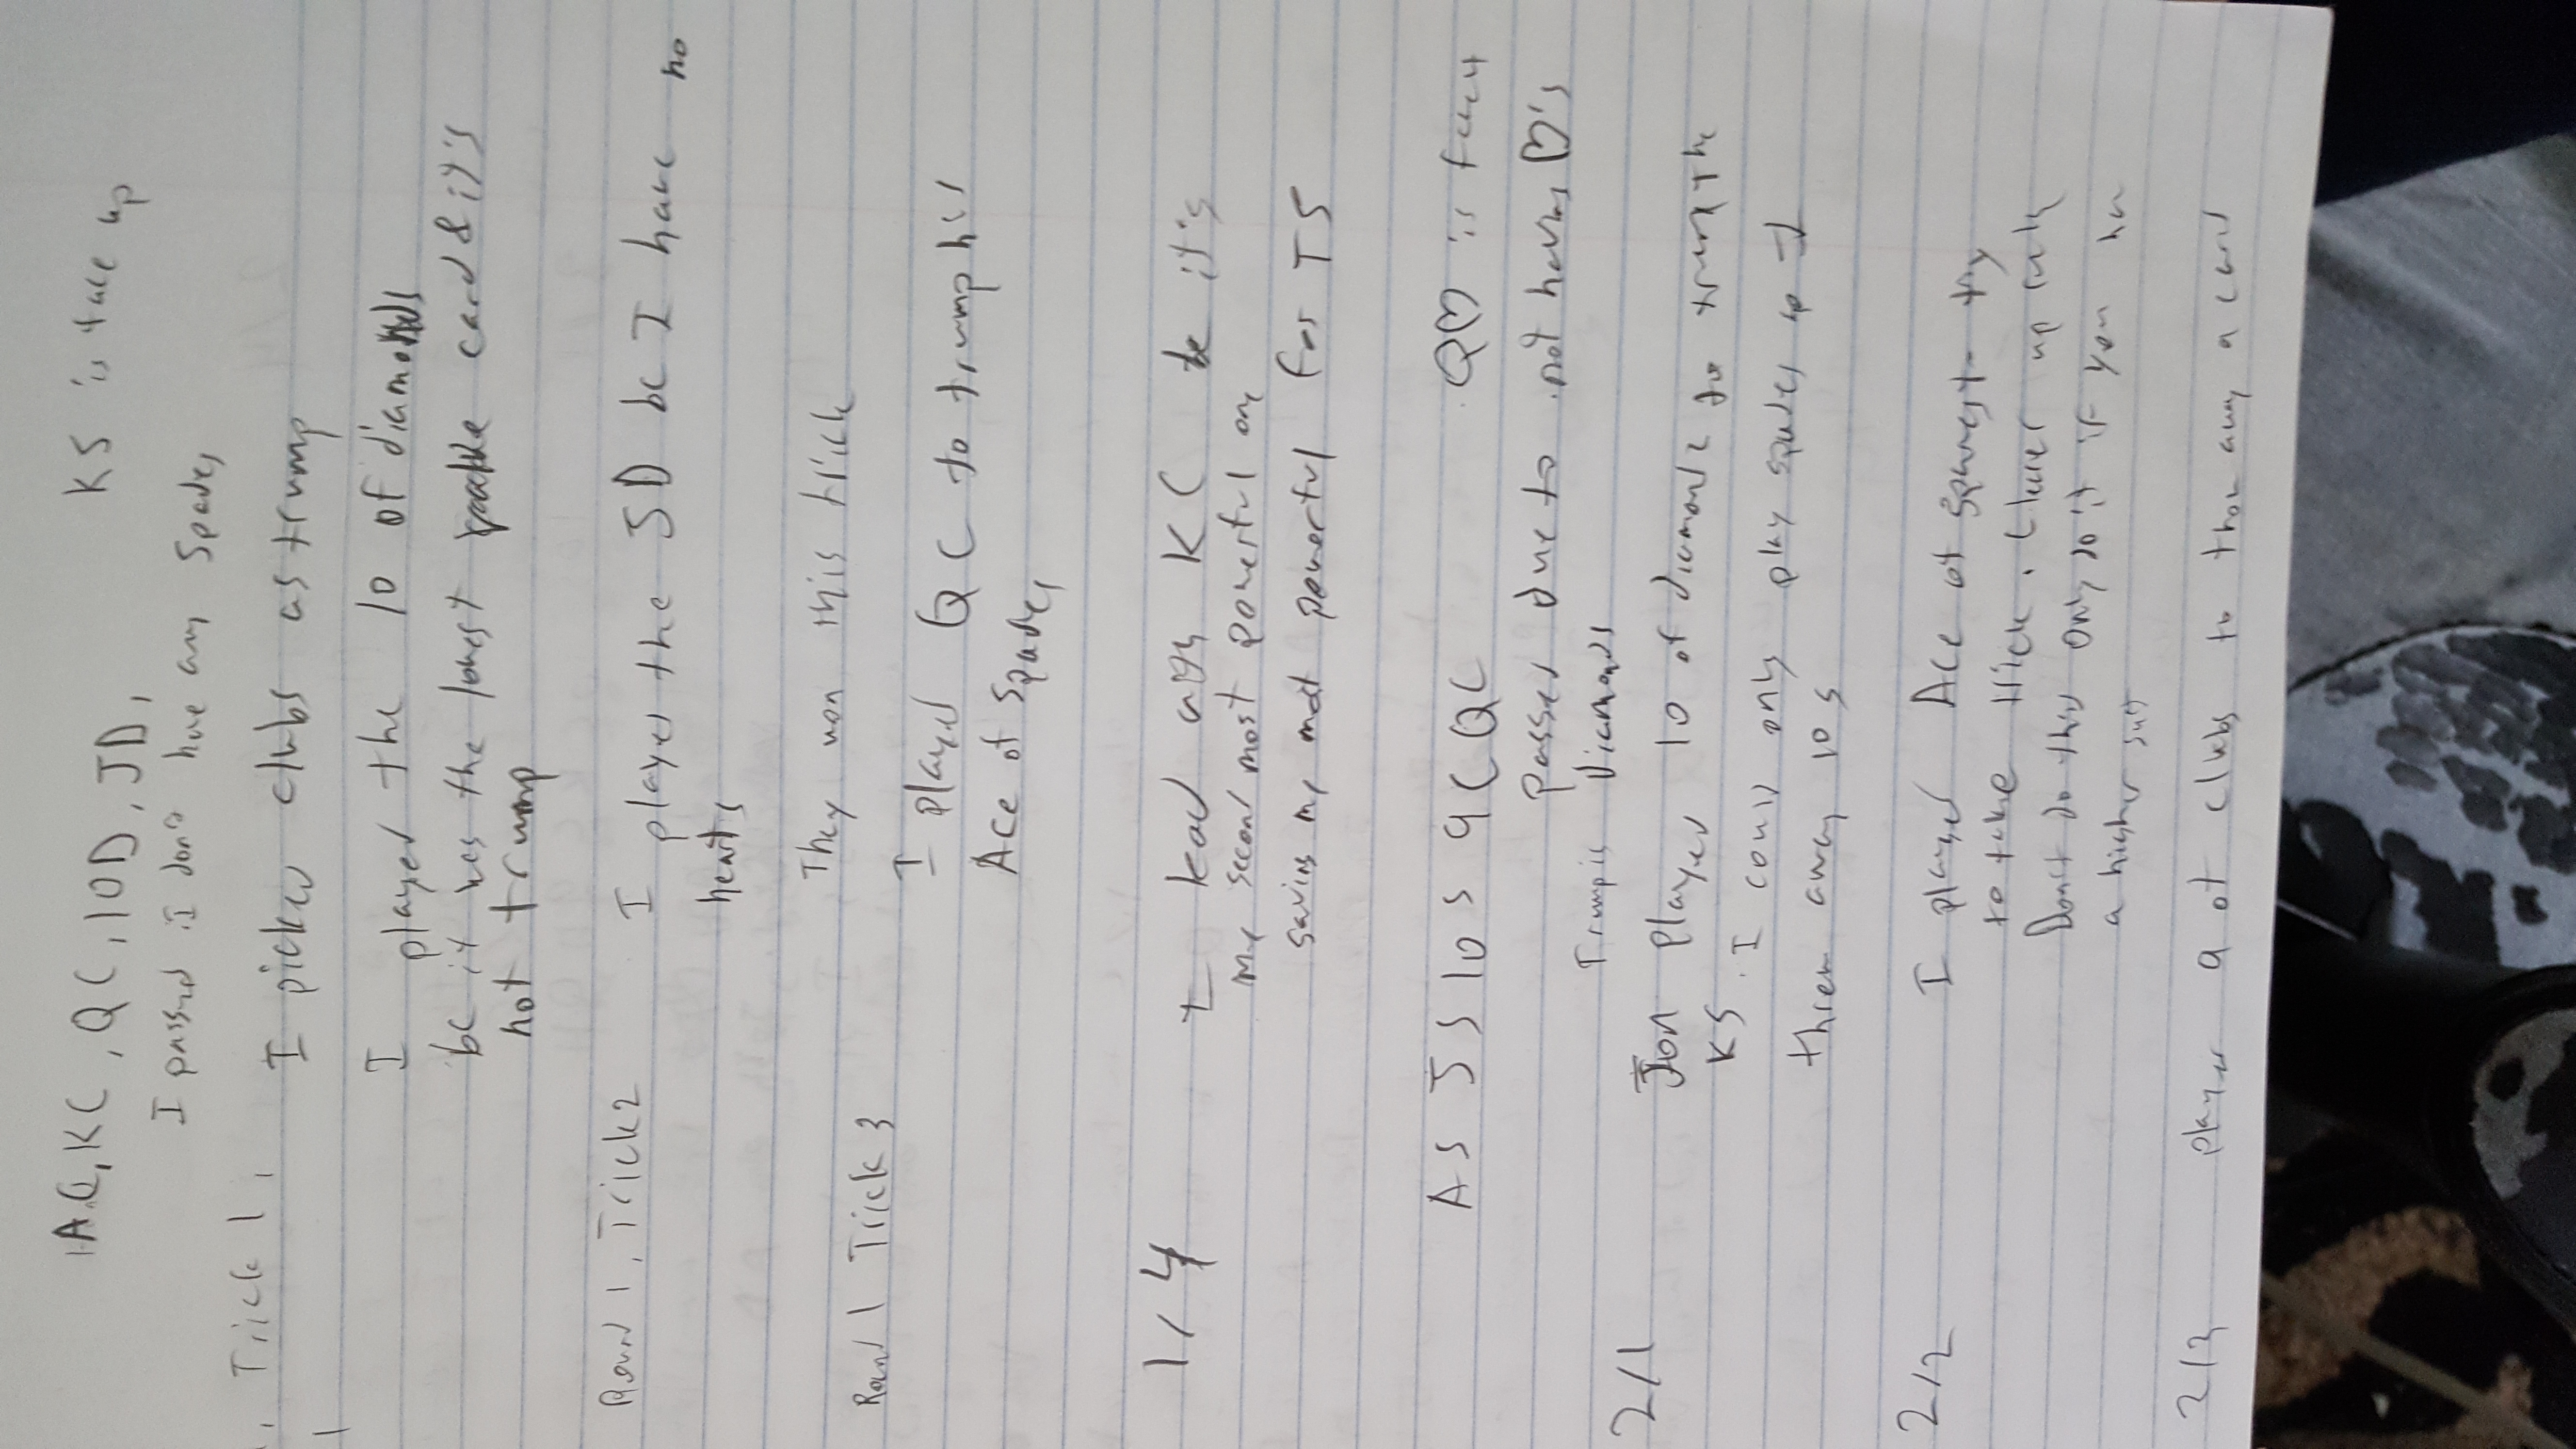 AC, KC, QC, 10D, JD,
KS is face up
I passed I don't have any Spades
, Trick 1,
I picked clubs as trump
1
I played the 10 of diamonds
bc it was the lowest card & it's
not trump
Round 1, Trick 2
I played the JD bc I have no
hearts
They won this trick
Round 1 Trick 3
I played QC to trump his
Ace of Spades
1/4
I lead with KC bc it's
my second most powerful one
saving my most powerful for T5
AS JS 10S 9C QC
Q♡ is face up
passed due to not having ♡'s
Trump is Diamonds
2/1
Jon played 10 of diamonds to trump the
KS. I could only play spades so I
threw away 10 s
2/2
I played Ace of spades to try
to take trick. up
Don't do this only do it if you have
a higher suit
2/3
played 9 of clubs to throw away a card